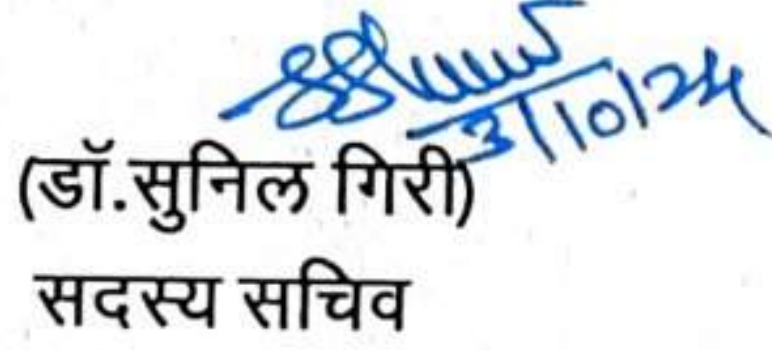 3/10/24
(डॉ.सुनिल गिरी)
सदस्य सचिव